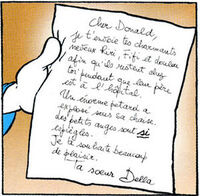 Cher Donald,
je t'envoie tes charmants
neveux Riri, Fifi et Loulou
afin qu'ils restent chez
toi pendant que leur père
est à l'hôpital.
Un énorme pétard a
explosé sous sa chaise.
Les petits anges sont si
espiègles.
Je te souhaite beaucoup
de plaisir.
Ta soeur Della